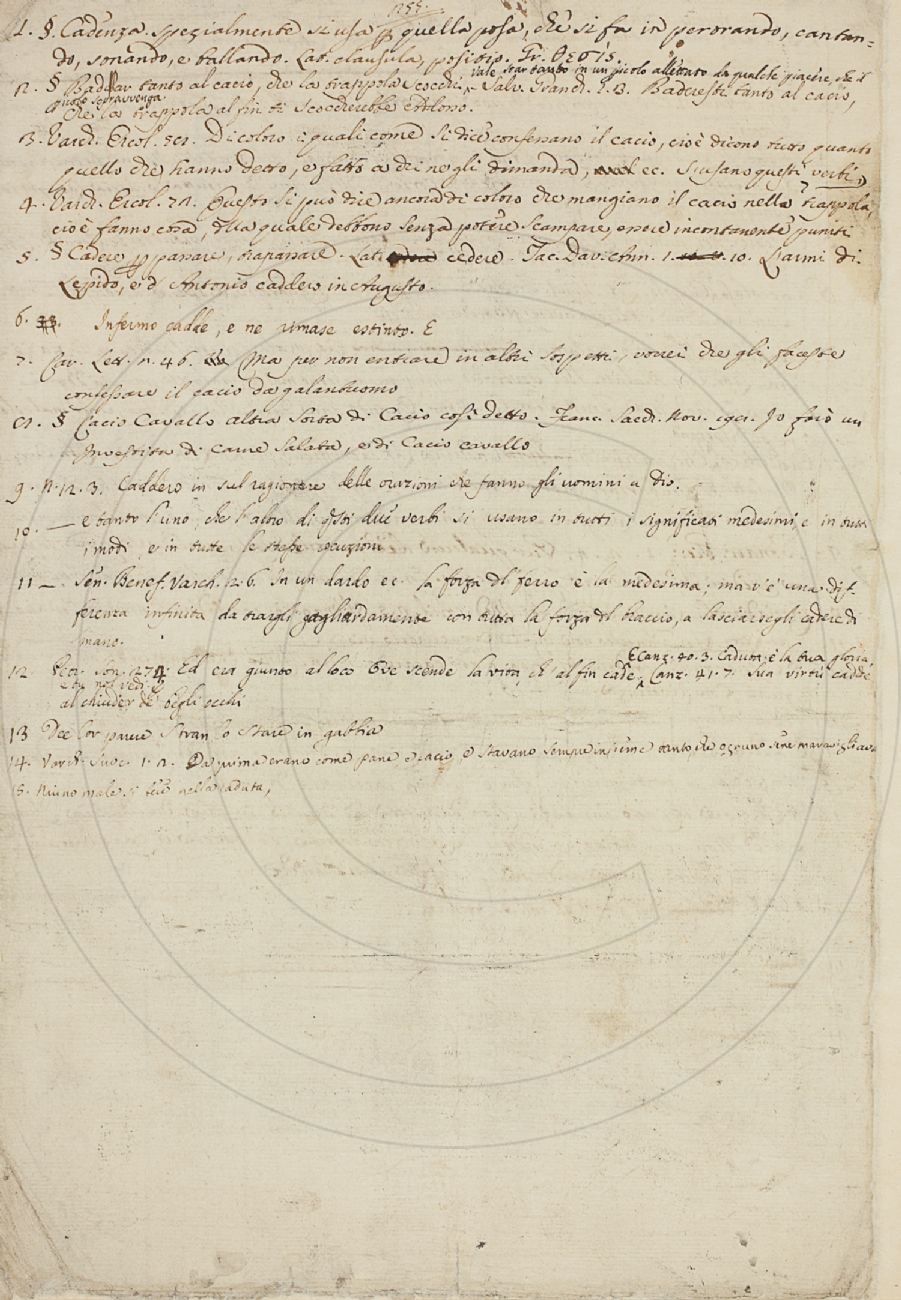 1255.
1. §. Cadenza. spezialmente si usa p quella posa, che si fa in perorando, cantan=
do, sonando, e ballando. Lat. clausula, positio. Gr.
vale star tanto in un picolo allettato da qualche piacere che il
2. § Badar tanto al cacio, che la trappola scocchi. Salv. Granch. 2. 3. Baderesti tanto al cacio,
che la trappola al fin ti scoccherebbe addosso.
3. Varch. Ercol. Di coloro i quali come si dice confessano il cacio, cioè dicono tutto quanto
quello che hanno detto, e fatto a chi ne gli dimanda, ec. si usano questi verbi,
4. Varch. Ercol. Questo si può dire ancora di coloro che mangiano il cacio nella trappola,
cioè fanno cosa, della quale debbono senza potere scampare, essere incontanente puniti
5. § Cadere p passare, trapassare. Lat. cedere. Tac. Dav. Ann. 1. 10. L'armi di
Lepido, e d'Antonio caddero in Augusto.
6. Infermo cadde, e ne rimase estinto. E
7. Car. Lett. n. 46. Ma per non entrare in altri sospetti, vorrei che gli faceste
confessare il cacio da galantuomo
§ Cacio Cavallo altra sorta di Cacio così detto. Franc. Sacch. Nov. Io farò un
investita di carne salata, e di Cacio cavallo
9. N. 12. 3. Caddero in sul ragionare delle orazioni che fanno gli uomini a Dio.
10. — e tanto l'uno che l'altro di questi due verbi si usano in tutti i significati medesimi, e in tutti
i modi, e in tutte le stesse locuzioni
11 — Sen. Benef. Varch. 2. 6. In un dardo ec. la forza del ferro è la medesima; ma v'è una dif-
ferenza infinita da trargli gagliardamente con tutta la forza del braccio, a lasciarsegli cadere di
mano.
E Canz. 40. 3. Caduta è la tua gloria,
e tu nol vedi
12. Petr. son. Ed era giunto al loco Ove scende la vita, ch'al fin cade. Canz. 41. 7. Sua virtù cadde
al chiuder de' begli occhi
13 Dee lor parere stran lo stare in gabbia
14. Varch. Suoc. 1. 2. Da prima erano come pane e cacio, e stavano sempre insieme tanto che ognuno
15. Niuno male si fece nella caduta,